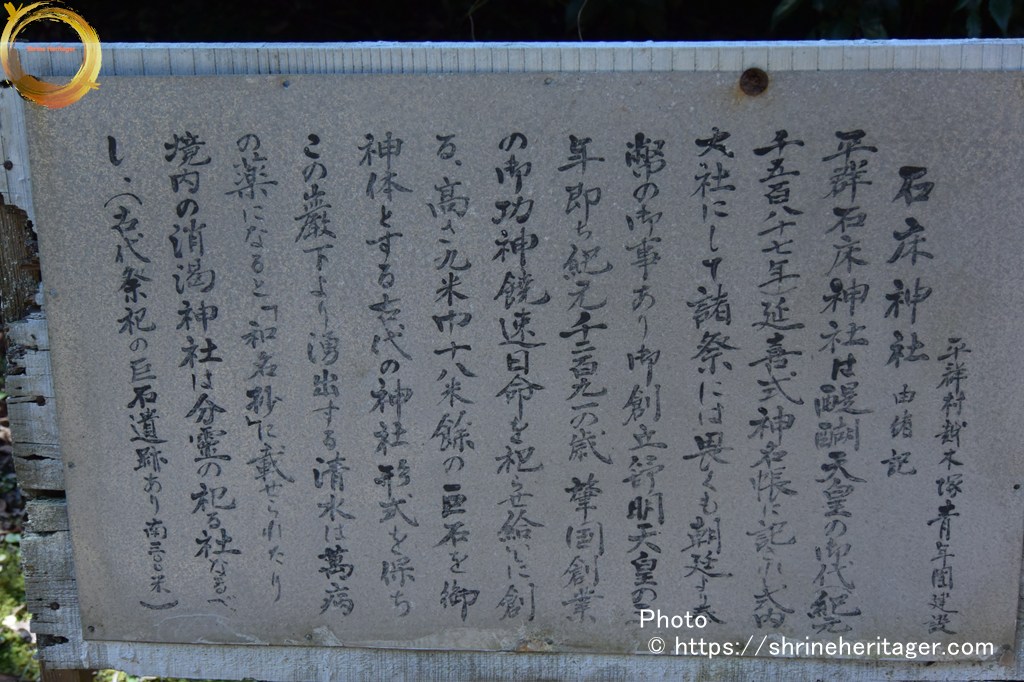 石床神社 由緒記
平群村越木塚青年團建設
平群石床神社は醍醐天皇の御代紀元
千五百八十七年延喜式神名帳に記され式内
大社にして諸祭には畏くも朝廷より奉
幣の御事あり御創立舒明天皇の三
年即ち紀元千二百九一の歳 肇国創業
の御功神饒速日命を祀らせ給いしに創
る、高さ九米巾十八米餘の巨石を御
神体とする古代の神社形式を保ち
この巌下より湧出する清水は萬病
の薬になると「和名抄」に載せられたり
境内の消渇神社は分霊の祀る社なるべ
し、(古代祭祀の巨石遺跡あり南三〇〇米)
Shrine Heritager
Photo
© https://shrineheritager.com